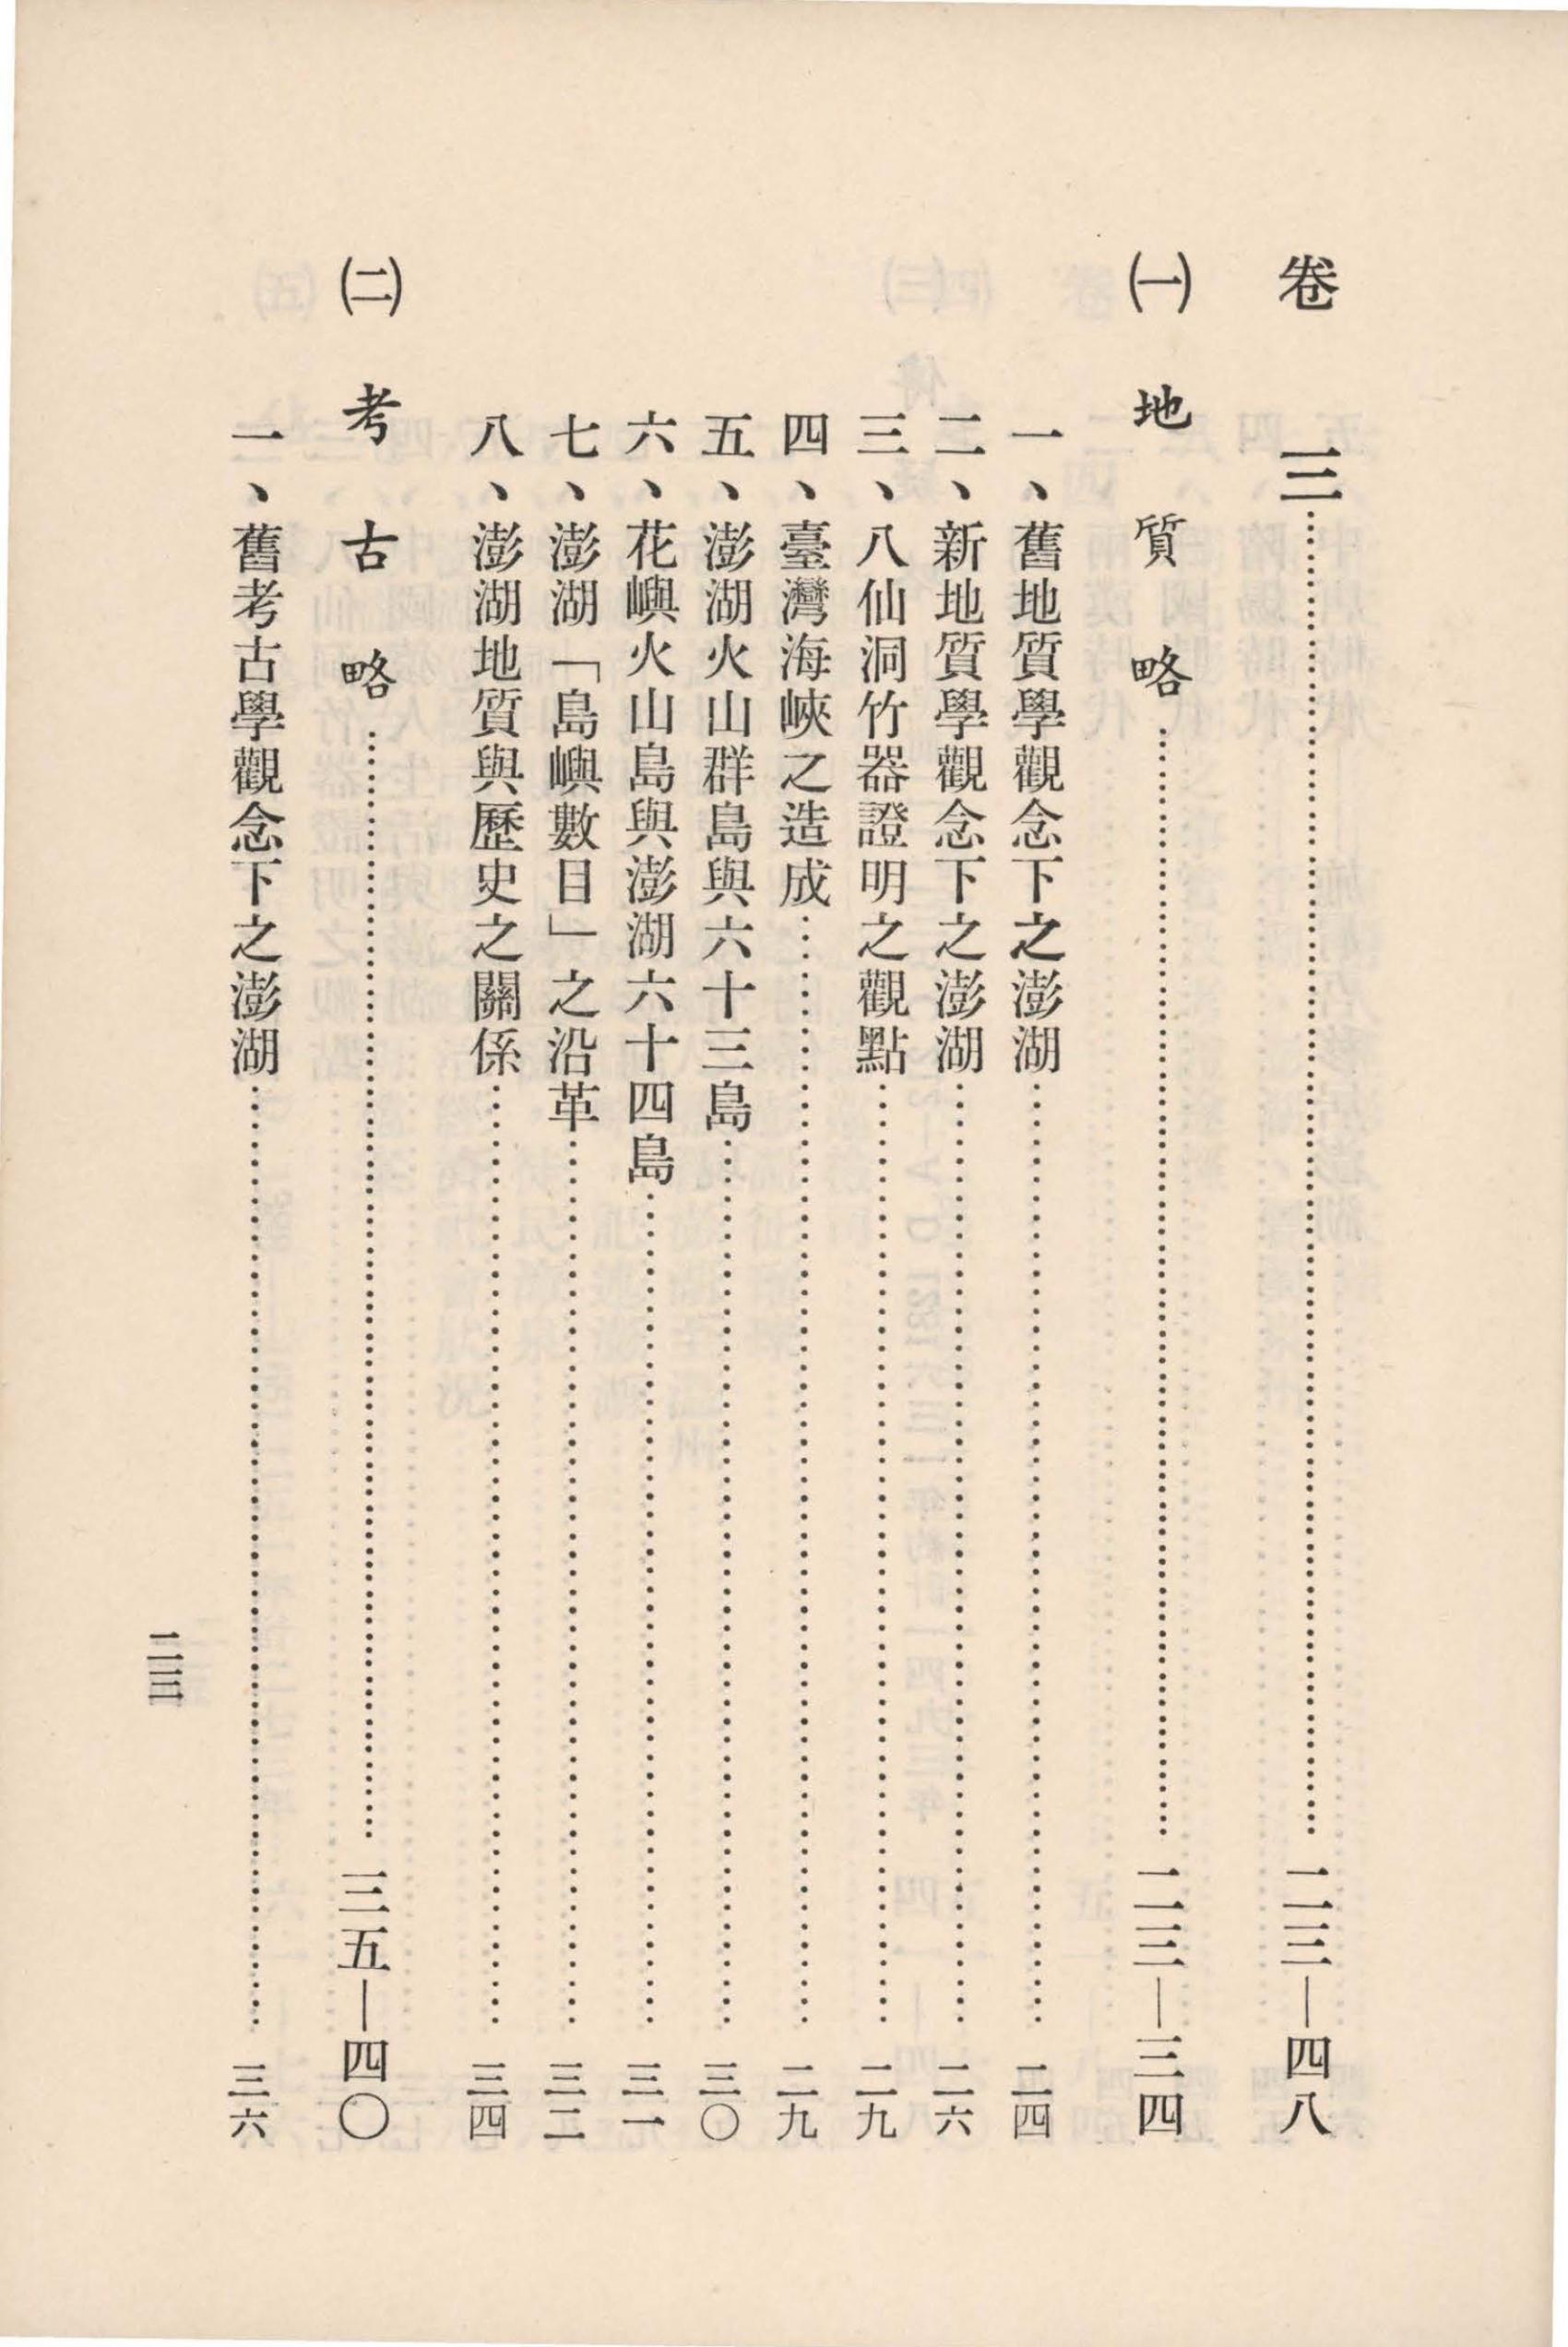 卷三……二三—四八
㈠地質略……二三—三四
一、舊地質學觀念下之澎湖……二四
二、新地質學觀念下之澎湖……二六
三、八仙洞竹器證明之觀點……二九
四、臺灣海峽之造成……二九
五、澎湖火山群島與六十三島……三〇
六、花嶼火山島與澎湖六十四島……三一
七、澎湖「島嶼數目」之沿革……三二
八、澎湖地質與歷史之關係……三四
㈡考古略……三五—四〇
一、舊考古學觀念下之澎湖……三六